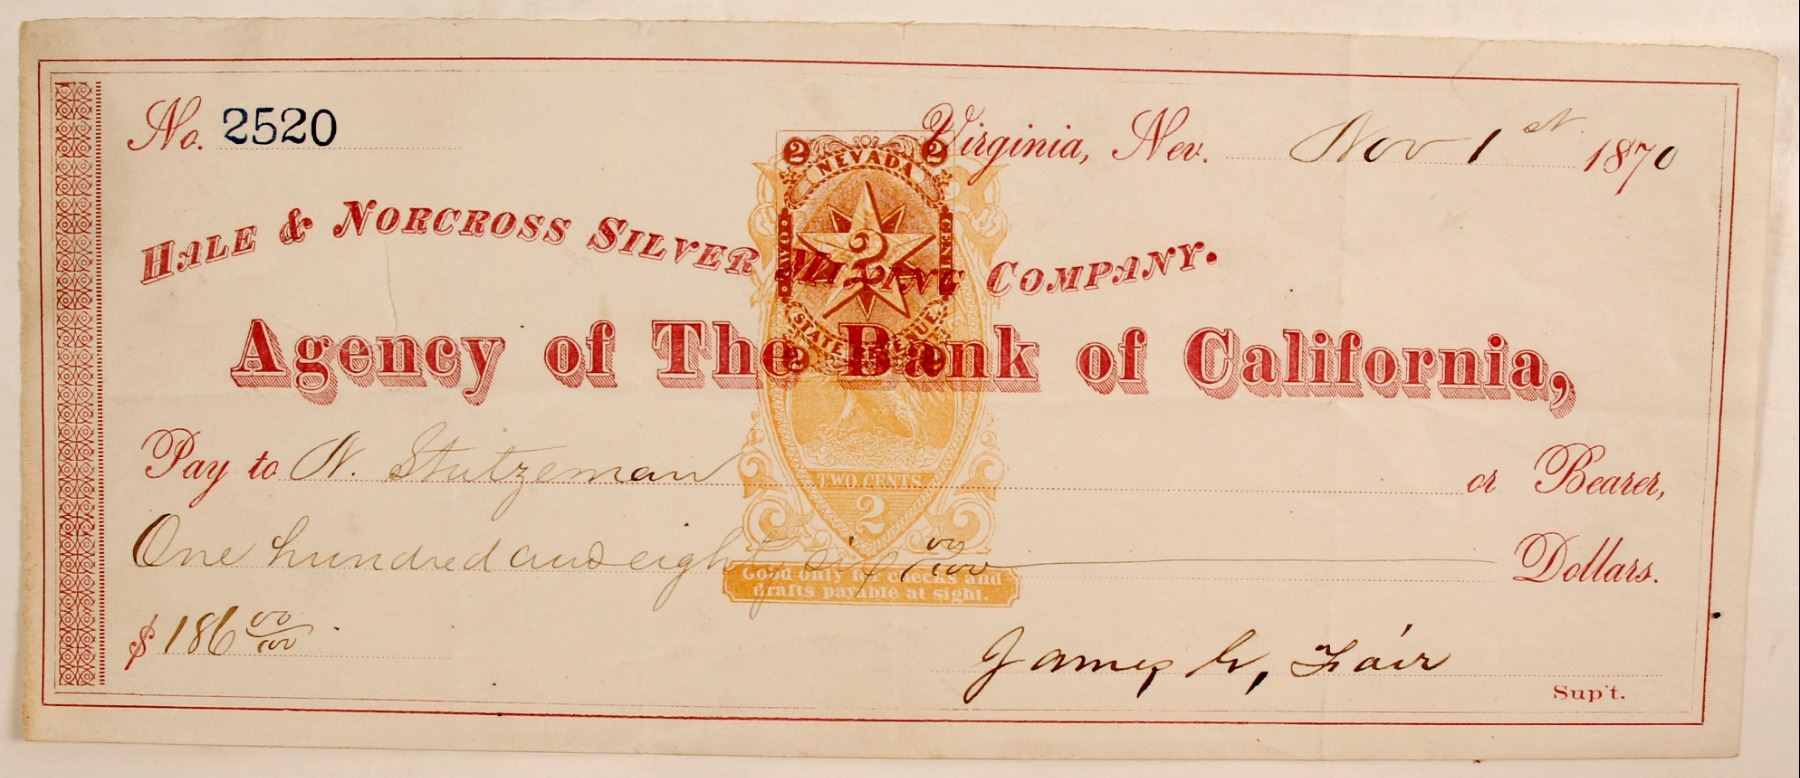 No. 2520 Virginia, Nev. Nov 1st 1870
2 NEVADA 2
HALE & NORCROSS SILVER MINING COMPANY.
2
STATE REVENUE
Agency of The Bank of California,
Pay to N. Stutzeman or Bearer,
TWO CENTS
2
One hundred and eighty six 00/100 Dollars.
Good only for checks and
drafts payable at sight.
$ 186 00/100
James G. Fair
Sup't.